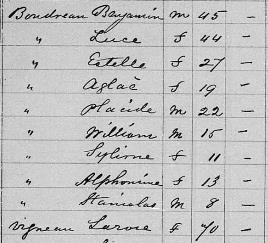 Boudreau Benjamin m 45 —
" Luce f 44 —
" Estelle f 27 —
" Aglaé f 19 —
" Placide m 22 —
" William m 15 —
" f 11 —
" Alphonsine f 13 —
" Stanislas m 8 —
Vigneau Larose f 70 —